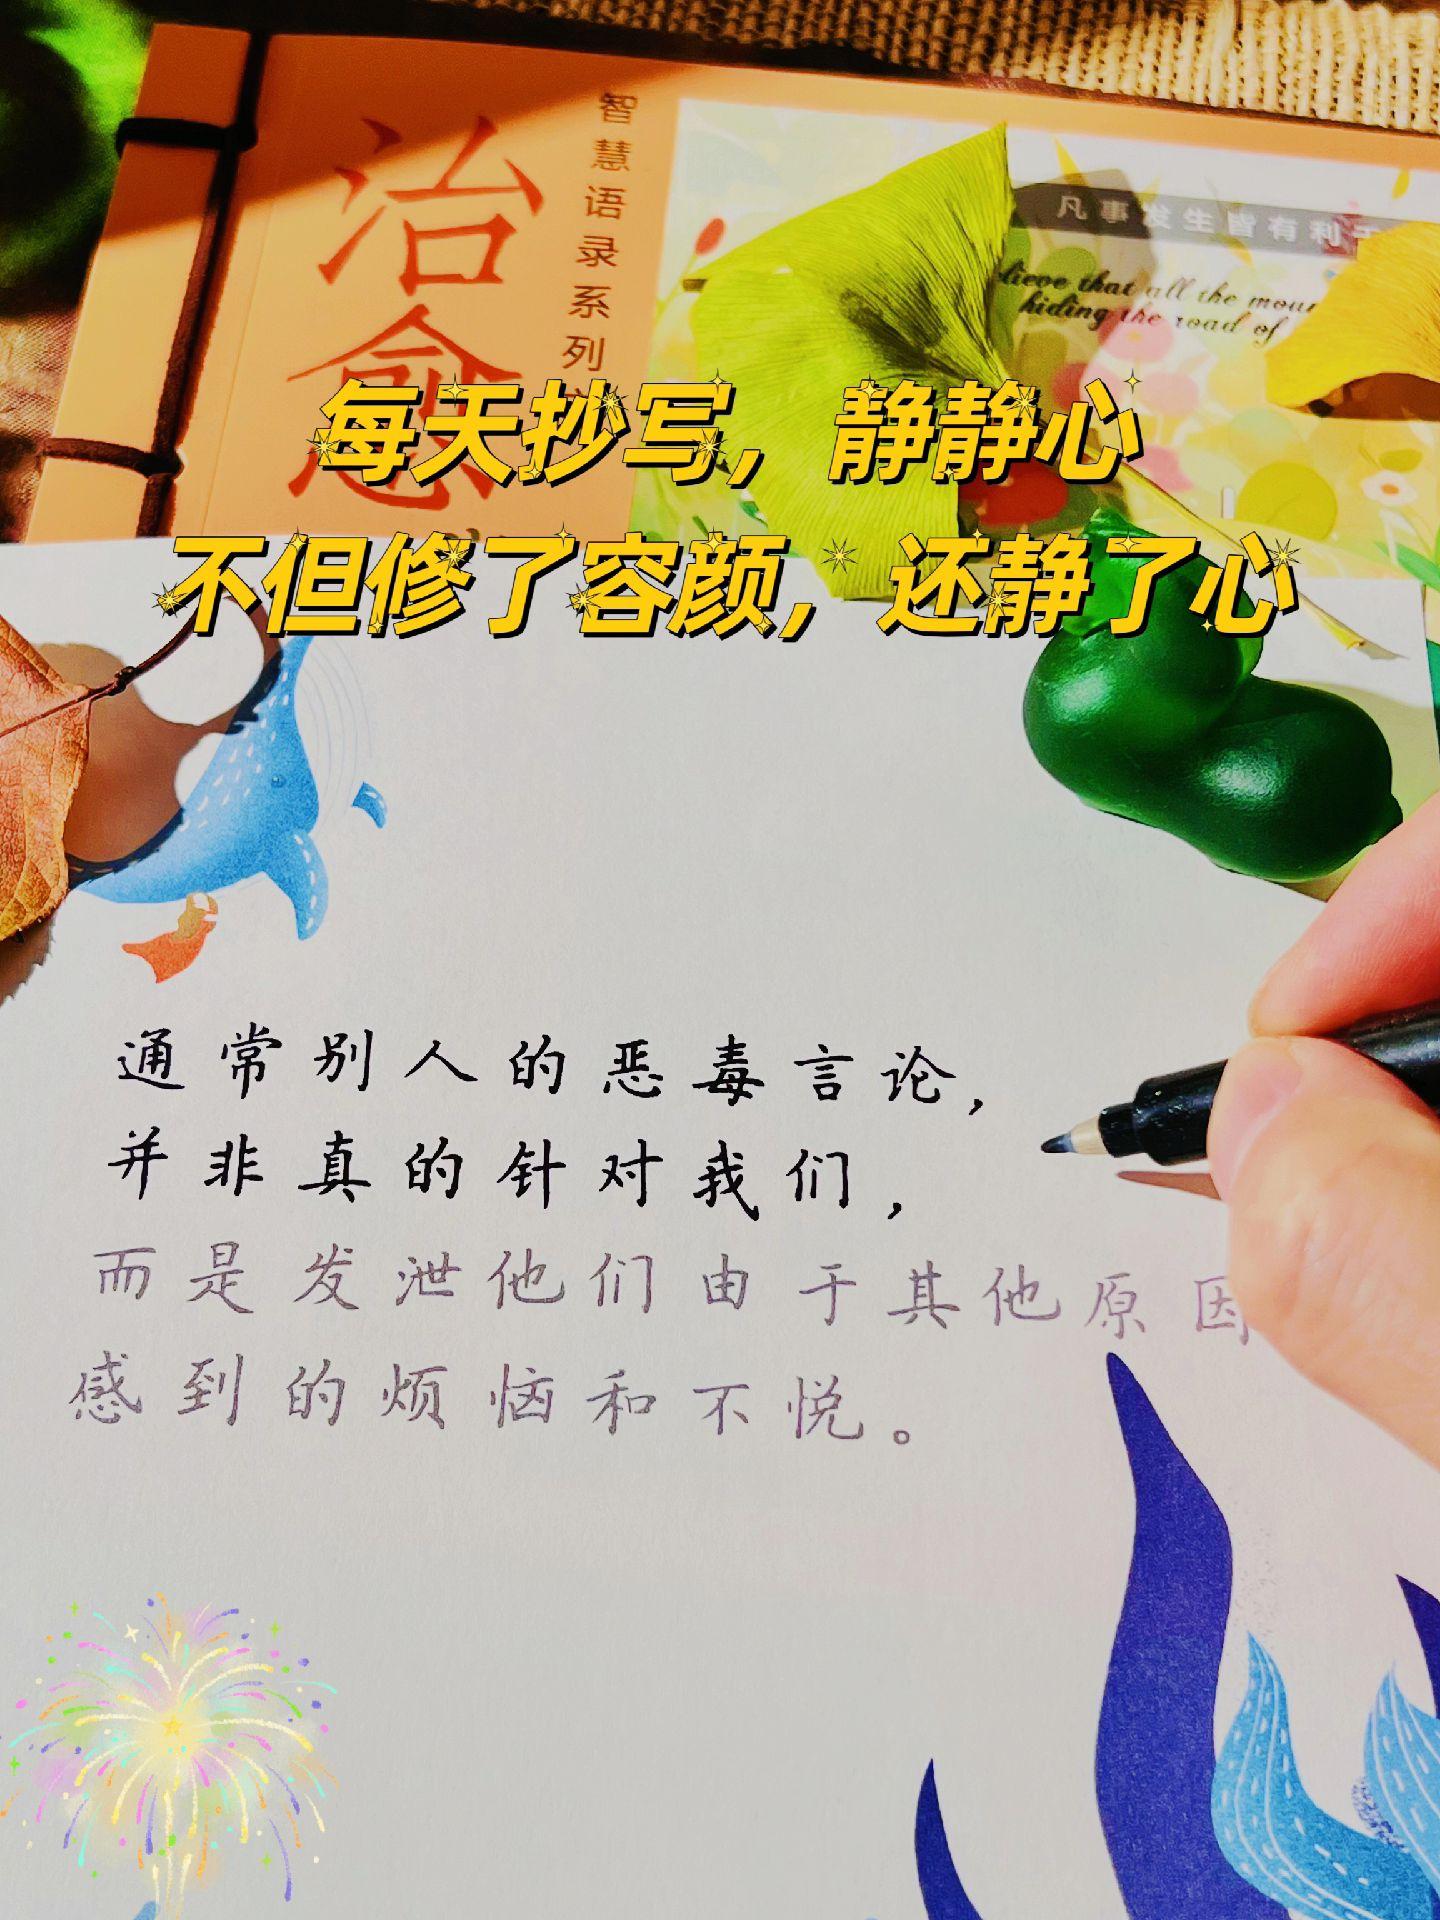 治愈
智慧语录系列
凡事发生皆有利于
lieve that all the moun
hiding the road of
每天抄写，静静心
不但修了容颜，还静了心
通常别人的恶毒言论，
并非真的针对我们，
而是发泄他们由于其他原因
感到的烦恼和不悦。